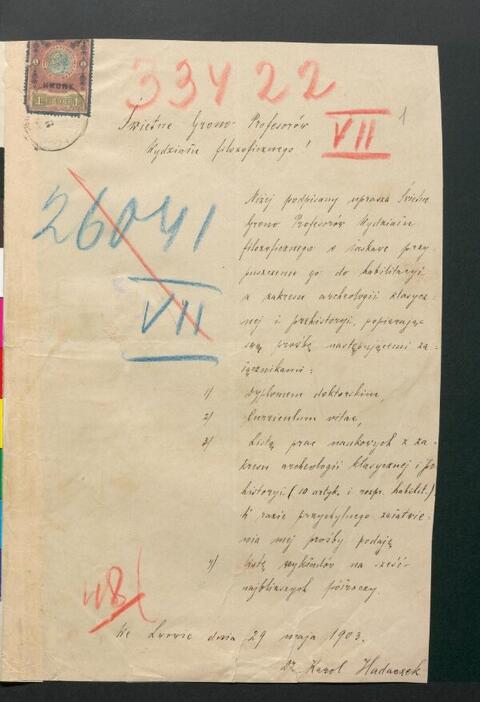 33422
VII
1
Świetne Grono Profesorów
Wydziału filozoficznego!
26041
VII
Niżej podpisany uprasza Świetne
Grono Profesorów Wydziału
filozoficznego o łaskawe przy-
puszczenie go do habilitacyi
z zakresu archeologii klasycz-
nej i prehistoryi, popierając
swą prośbę następującemi za-
łącznikami:
1) Dyplomem doktorskim,
2) Curriculum vitae,
3) Listą prac naukowych z za-
kresu archeologii klasycznej i pre
historyi (10 artyk. i rozpr. habilit.)
W razie przychylnego załatwie-
nia mej prośby podaję
4) listę wykładów na sześć
najbliższych półroczy.
48
We Lwowie dnia 29 maja 1903.
Dr Karol Hadaczek